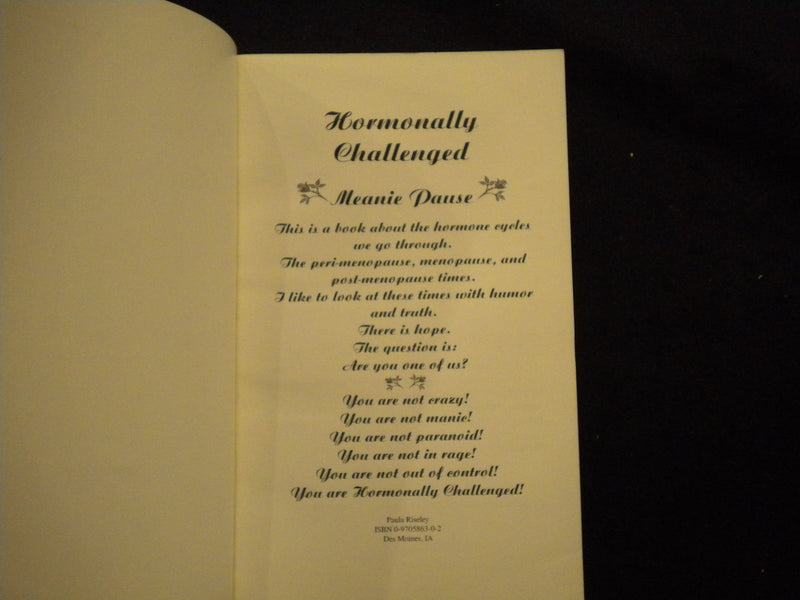 Hormonally
Challenged
Meanie Pause
This is a book about the hormone cycles
we go through.
The peri-menopause, menopause, and
post-menopause times.
I like to look at these times with humor
and truth.
There is hope.
The question is:
Are you one of us?
You are not crazy!
You are not manic!
You are not paranoid!
You are not in rage!
You are not out of control!
You are Hormonally Challenged!
Paula Riseley
ISBN 0-9705863-0-2
Des Moines, IA